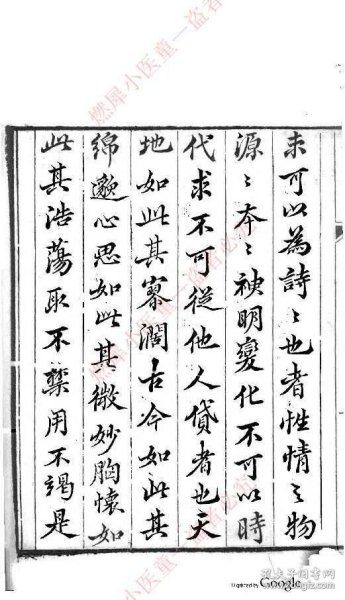 未可以為詩〻也者性情之物
源〻本〻神明變化不可以時
代求不可從他人貸者也天
地如此其寥濶古今如此其
綿邈心思如此其微妙胸懷如
此其浩蕩取不禁用不竭是
燃犀小医童一盗者必究
Digitized by Google